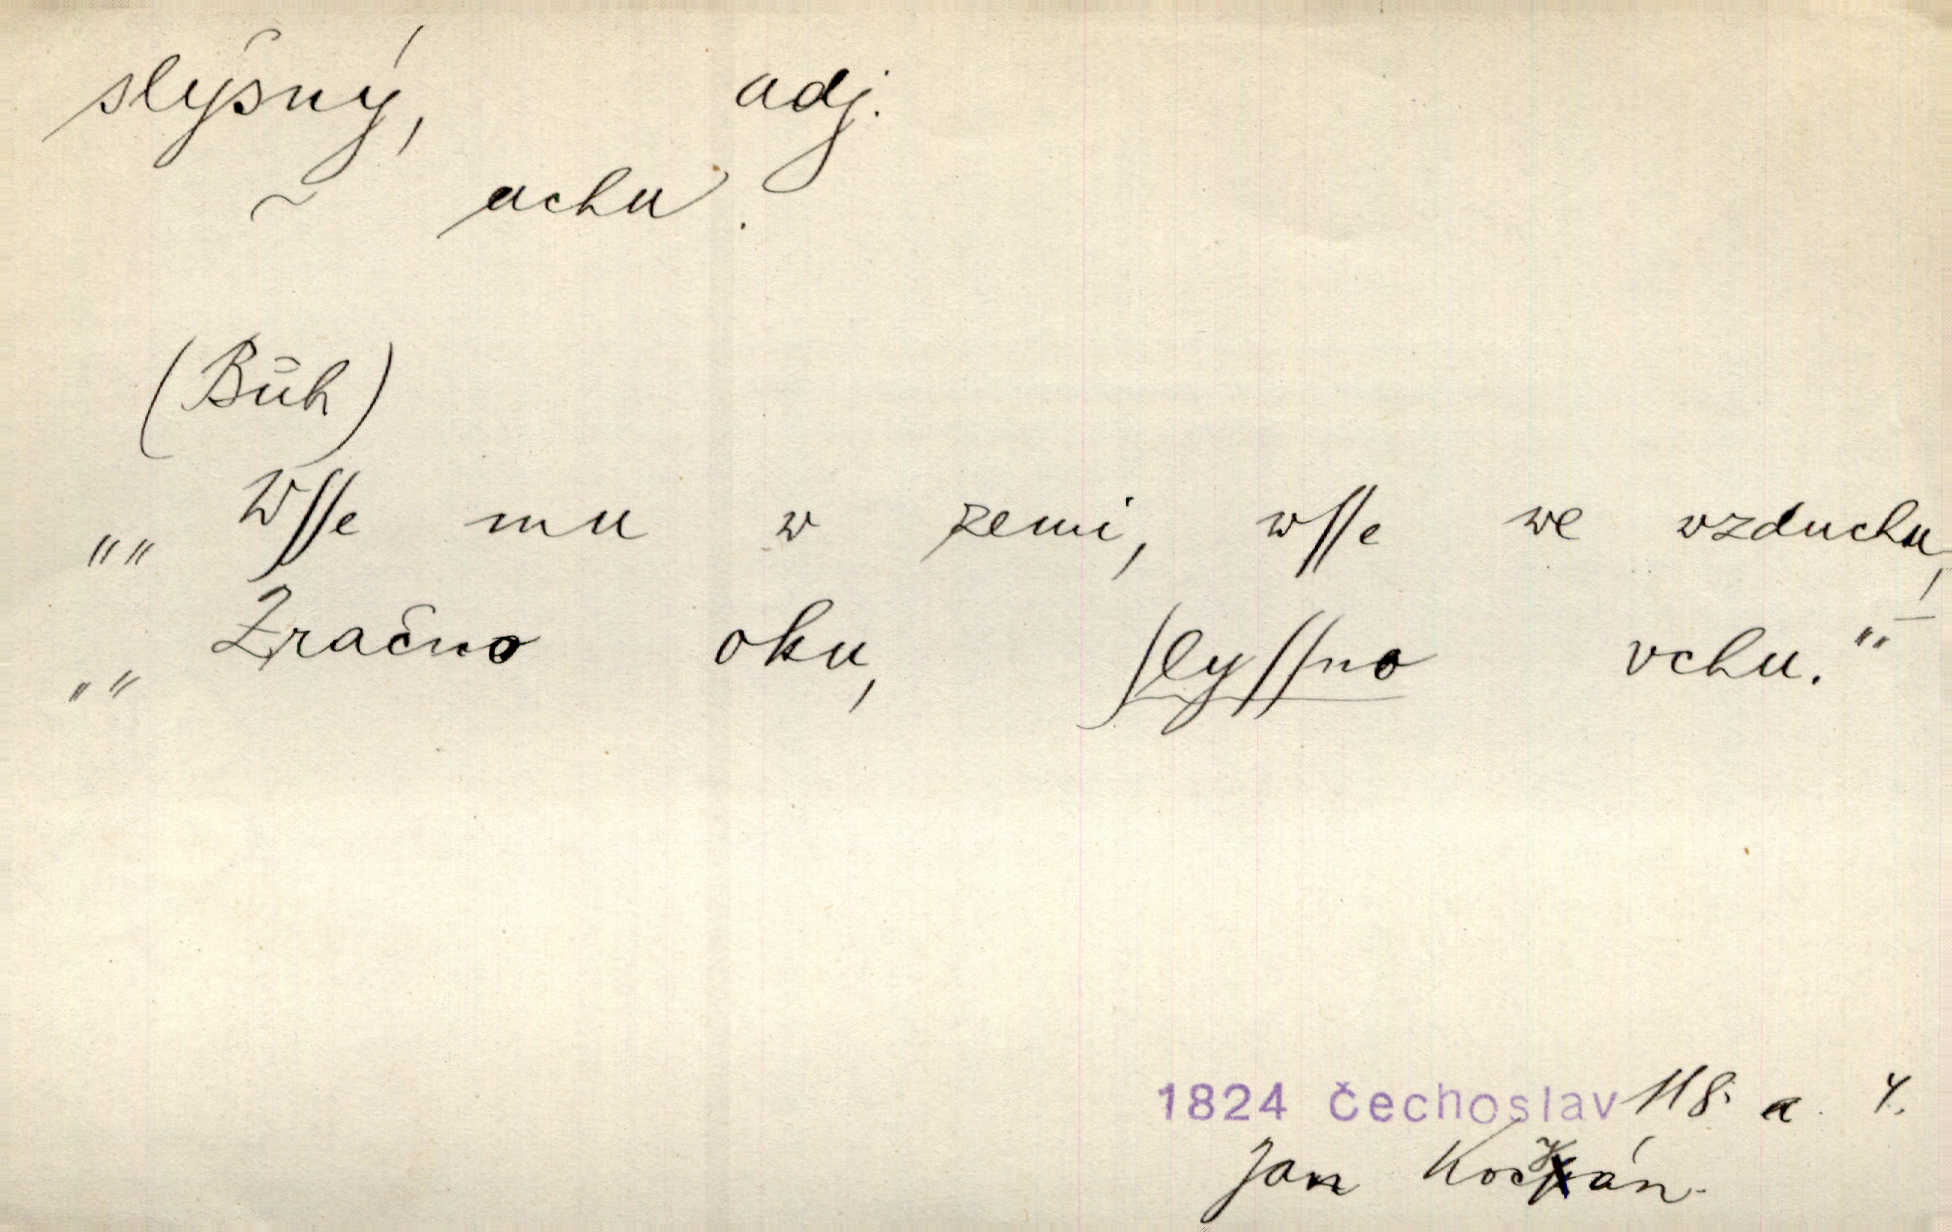 slyšný, adj.
~ uchu.
(Bůh)
„„ Wſſe mu w zemi, wſſe we wzduchu,
„„ Zračno oku, ſlyſſno vchu.““
1824 Čechoslav 118. a. 4.
Jan